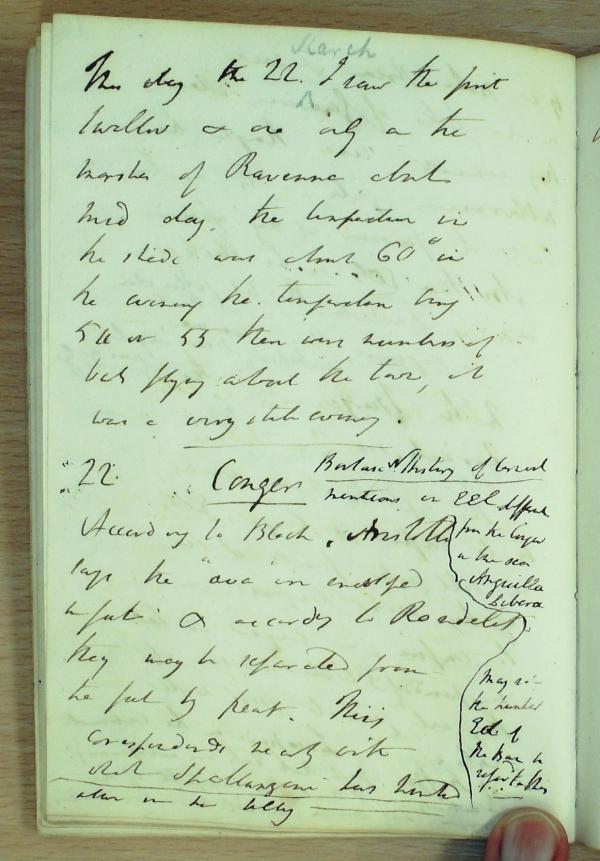 March
This day the 22. I saw the first
swallow & one only on the
marshes of Ravenna about
mid day, the temperature in
the shade was about 60° in
the evening the temperature being
54 or 55 there were numbers of
bats flying about the town, it
was a very still evening.
22 Conger
According to Bloch, Aristotle
says the "ova" in
& according to Rondelet
they may be separated from
the fat by heat. This
corresponds nearly with
what Spallanzani has
History of
mentions an Eel different
from the Conger
in the sea
Anguilla
May not
the
Eel of
the be
referred to this